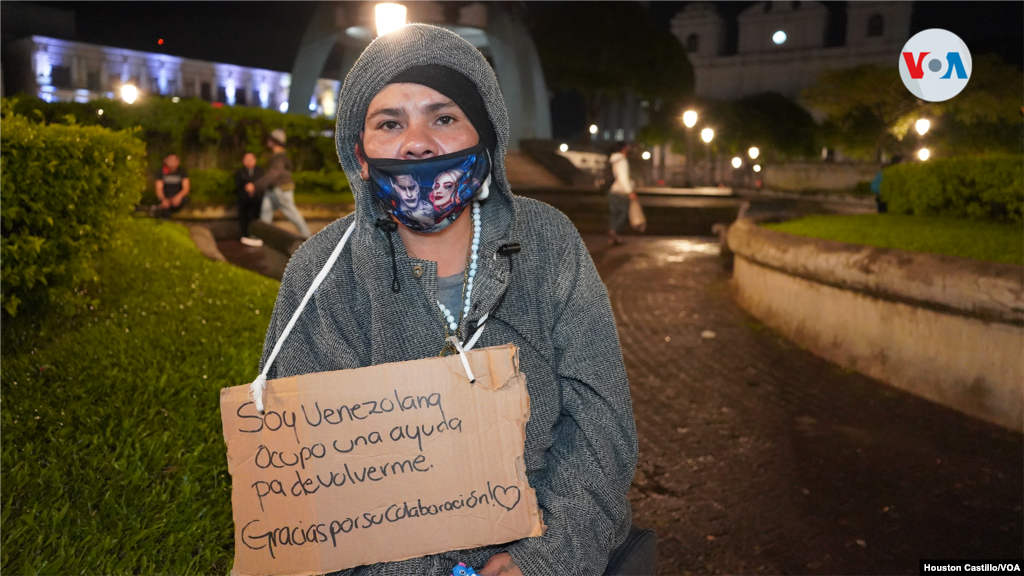 VOA
Soy Venezolana
ocupo una ayuda
pa devolverme.
Gracias por su colaboración! ♡
Houston Castillo/VOA